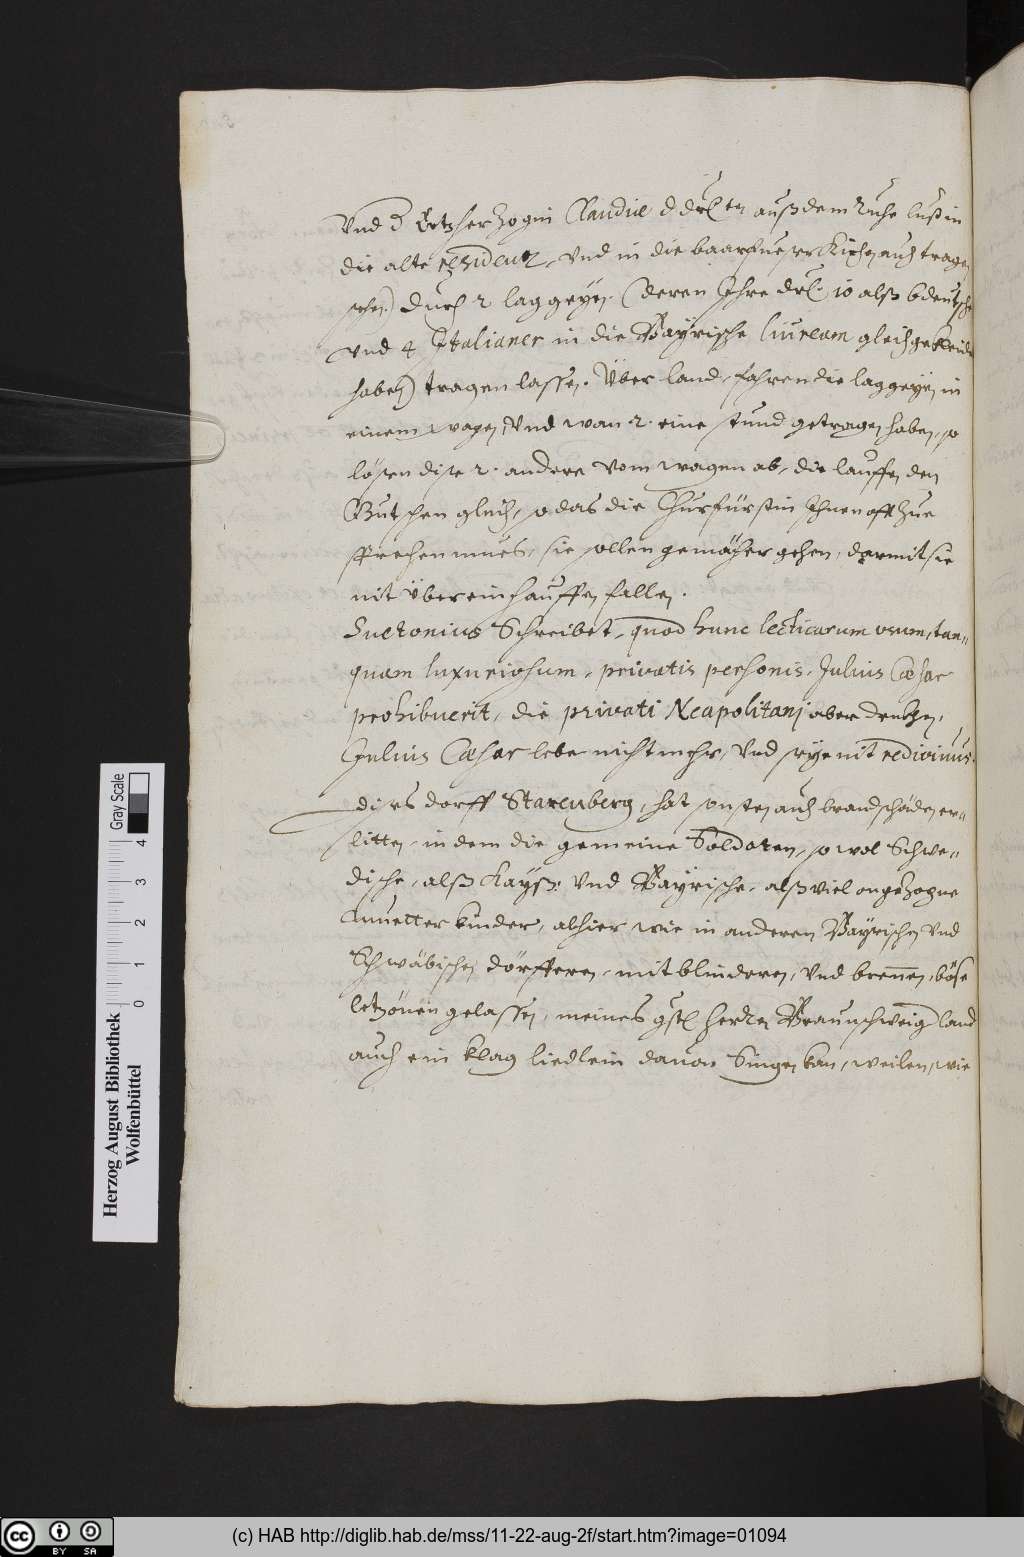 Vnd d Ertzherzogin Claudiæ d drl. auß dem Ruhe lust in
die alte residentz, Vnd in die baarfueser Kirchen auch tragen
sehen) durch 2 laggeyen. (deren Ihre drl. 10 alß 6 deutsche
vnd 4 Italianer in die Bayrische liuream gleich gekleidt
haben) tragen lassen. Über land, fahren die laggeyen in
einem wagen, Vnd wan 2. eine stund getragen haben, so
lösen dise 2. andere vom wagen ab, die lauffen den
Gutschen gleich, so das die Churfürstin Ihnen offt zue
sprechen mues, sie sollen gemächer gehen, darmit sie
nit über ein hauffen fallen.
Suetonius Schreibet, quod hunc lecticarum vsum, tan-
quam luxuriosum, privatis personis, Julius Cæsar
prohibuerit, die privati Neapolitanj aber denckhen,
Julius Cæsar lebe nicht mehr, Vnd seye nit redivivus.
dises dorff Starenberg, hat sonsten auch brandschäden er-
litten, in dem die gemeine Soldaten, so wol Schwe-
dische, alß Kayß: Vnd Bayrische, alß viel ongezogne
Muetter kinder, alhier wie in anderen Bayrischen Vnd
Schwäbischen dörfferen, mit blinderen, Vnd brennen, böse
letzönen gelassen, meines gstl herren Braunschweig land
auch ein klag liedlein dauon Singen kan, weilen, wie
Herzog August Bibliothek
Wolfenbüttel
0 1 2 3 4
Gray Scale
cc BY SA
(c) HAB http://diglib.hab.de/mss/11-22-aug-2f/start.htm?image=01094